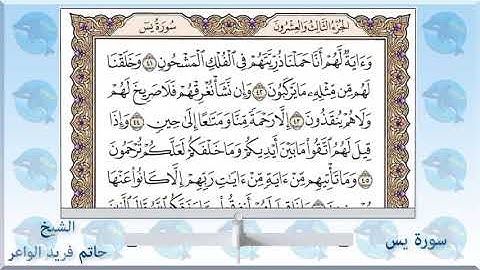 سُورَةُ يسٓ
الجُزْءُ الثَّالِثُ وَالعِشْرُونَ
وَءَايَةٌ لَّهُمْ أَنَّا حَمَلْنَا ذُرِّيَّتَهُمْ فِي الْفُلْكِ الْمَشْحُونِ ٤١ وَخَلَقْنَا
لَهُم مِّن مِّثْلِهِ مَا يَرْكَبُونَ ٤٢ وَإِن نَّشَأْ نُغْرِقْهُمْ فَلَا صَرِيخَ لَهُمْ
وَلَا هُمْ يُنقَذُونَ ٤٣ إِلَّا رَحْمَةً مِّنَّا وَمَتَاعًا إِلَىٰ حِينٍ ٤٤ وَإِذَا
قِيلَ لَهُمُ اتَّقُوا مَا بَيْنَ أَيْدِيكُمْ وَمَا خَلْفَكُمْ لَعَلَّكُمْ تُرْحَمُونَ
٤٥ وَمَا تَأْتِيهِم مِّنْ ءَايَةٍ مِّنْ ءَايَاتِ رَبِّهِمْ إِلَّا كَانُوا عَنْهَا
سورة يس
الشيخ
حاتم فريد الواعر